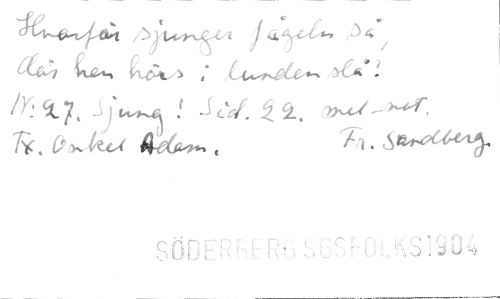 Hvarför sjunger fågeln så,
där han hörs i lunden slå?
N: 27. Sjung! Sid. 22. mel-not.
Tx. Onkel Adam. Fr. Sandberg.
SÖDERBERG SGSFOLKS1904